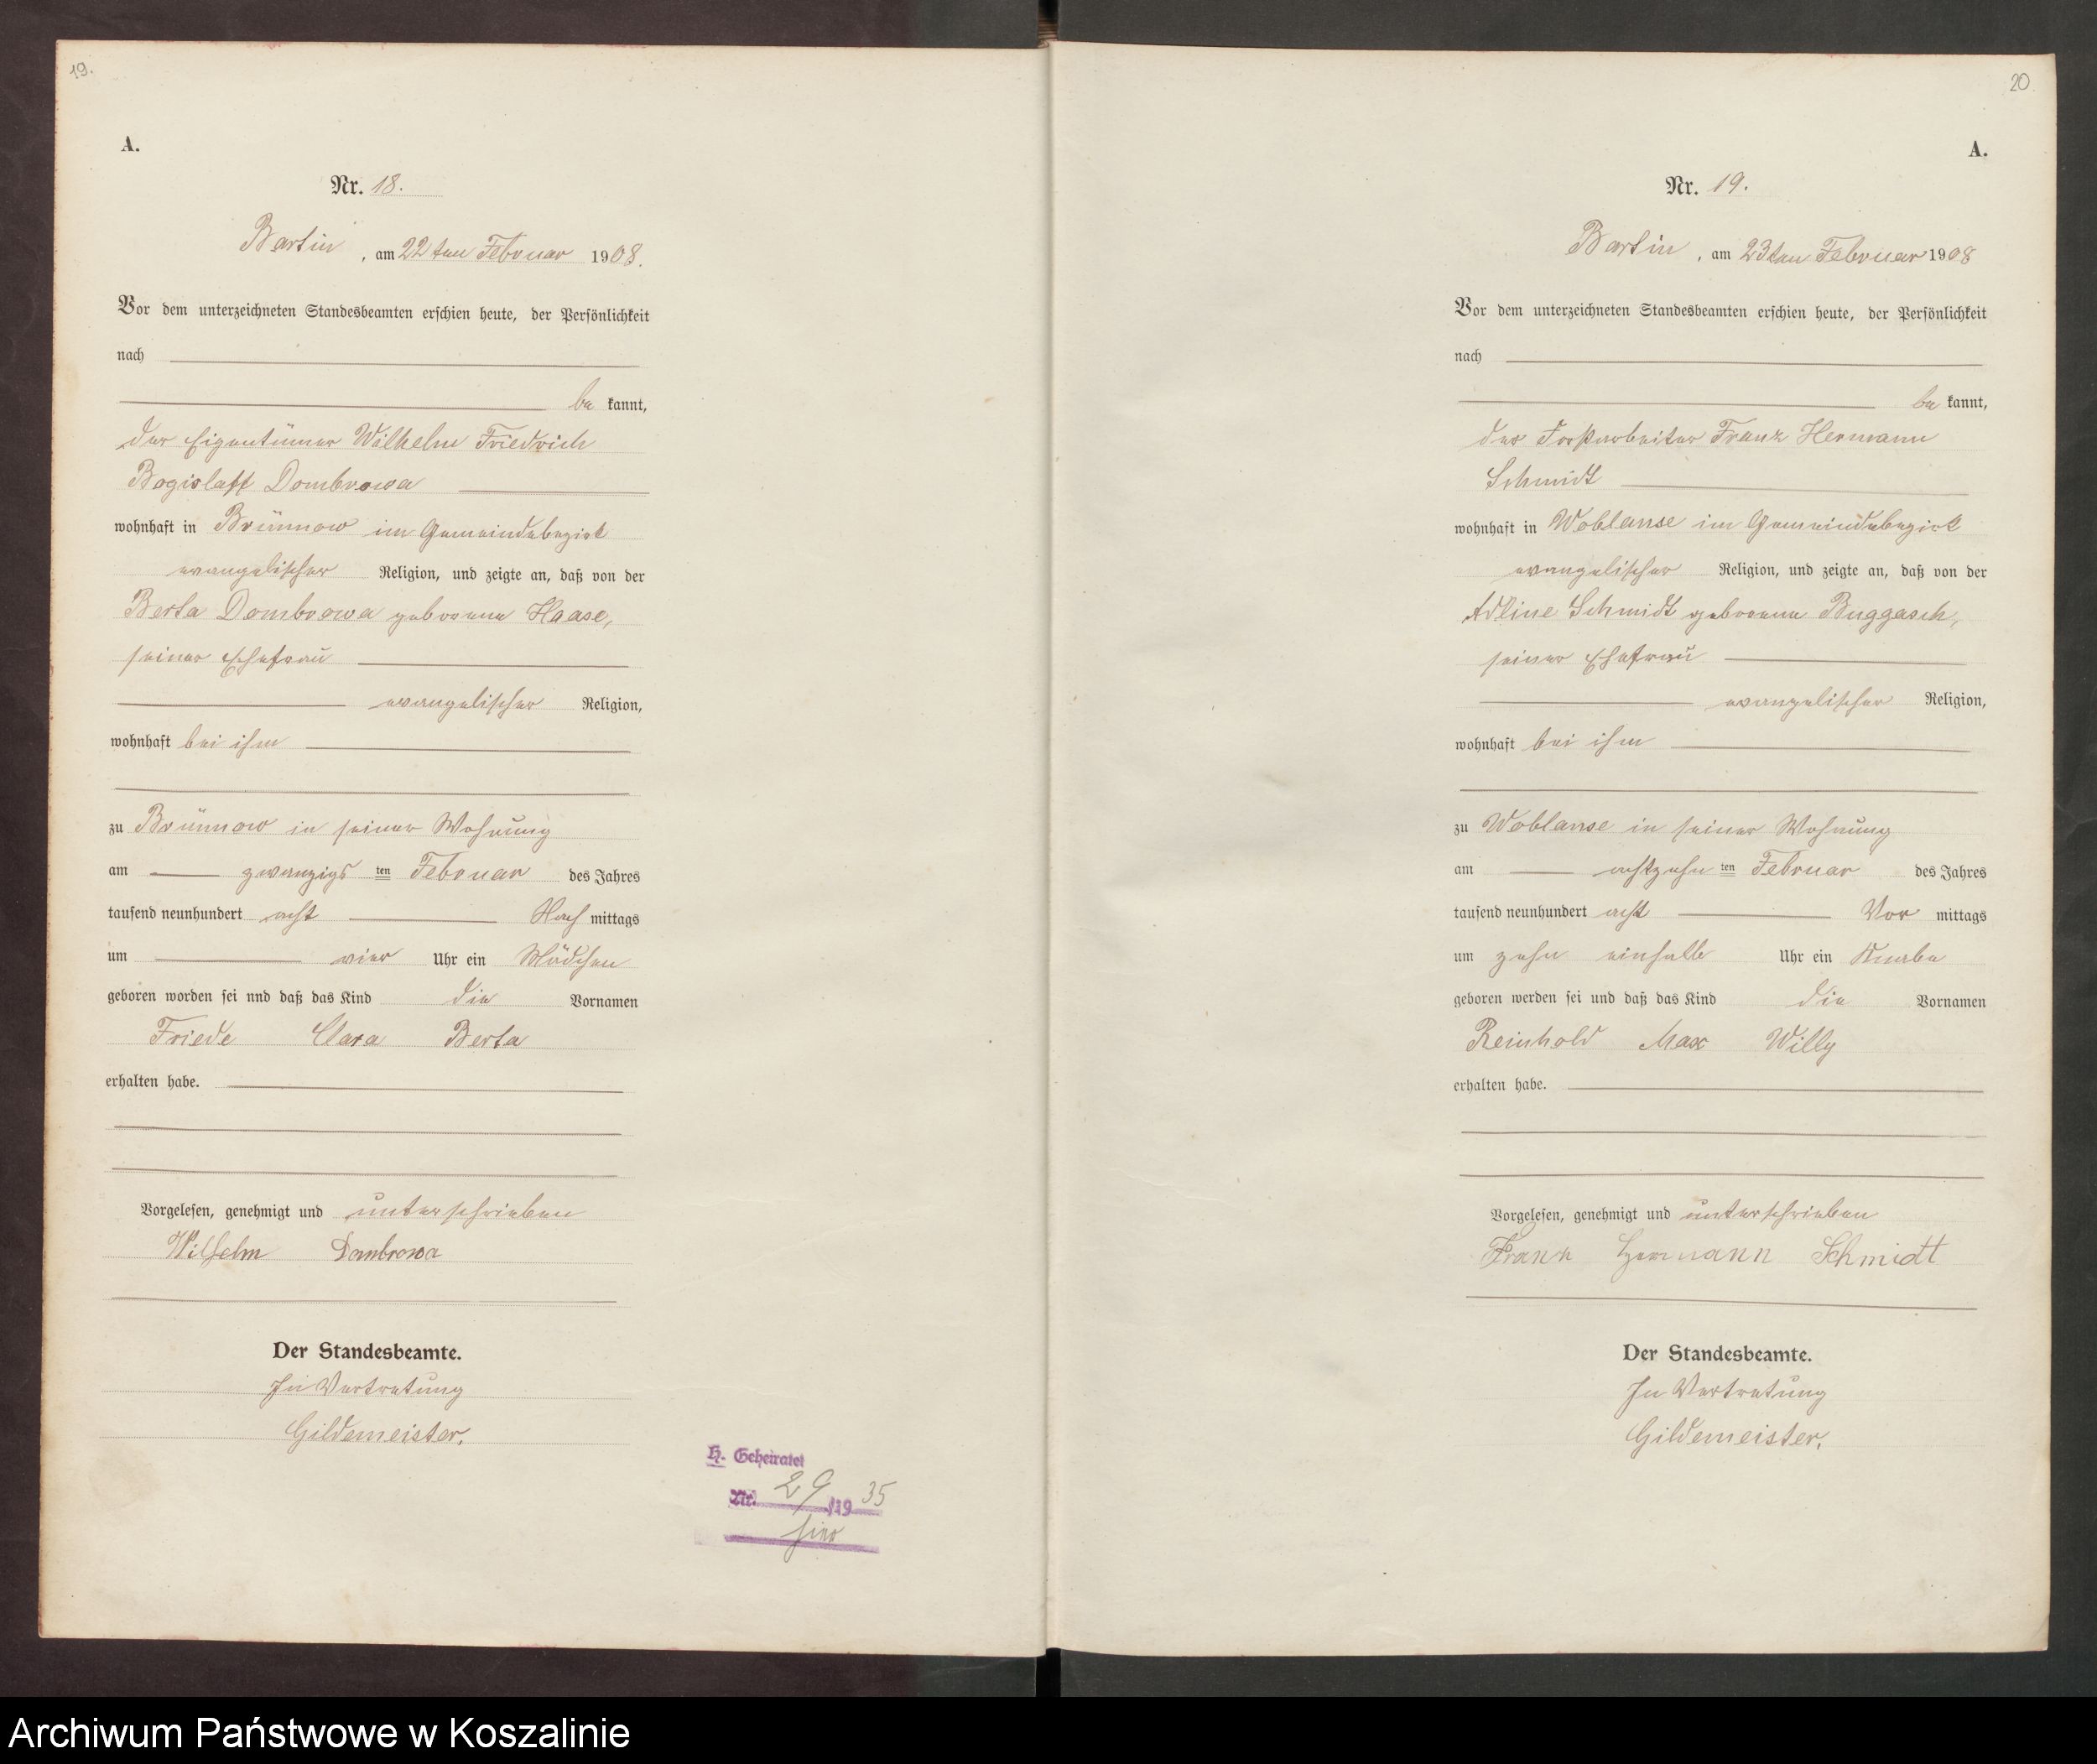 19.
A.
Nr. 18.
Bartin, am 22ten Februar 1908.
Vor dem unterzeichneten Standesbeamten erschien heute, der Persönlichkeit
nach
be kannt,
der Eigentümer Wilhelm Friedrich
Bogislaff Dombrowa
wohnhaft in Brünnow im Gemeindebezirk
evangelischer Religion, und zeigte an, daß von der
Berta Dombrowa geborene Haase,
seiner Ehefrau
evangelischer Religion,
wohnhaft bei ihm
zu Brünnow in seiner Wohnung
am zwanzigs ten Februar des Jahres
tausend neunhundert acht Nach mittags
um vier Uhr ein Mädchen
geboren worden sei nnd daß das Kind die Vornamen
Friede Clara Berta
erhalten habe.
Vorgelesen, genehmigt und unterschrieben
Wilhelm Dombrowa
Der Standesbeamte.
In Vertretung
Gildemeister.
H. Geheiratet
Nr. 29/1935
hier
20
A.
Nr. 19.
Bartin, am 23ten Februar 1908
Vor dem unterzeichneten Standesbeamten erschien heute, der Persönlichkeit
nach
be kannt,
der Forstarbeiter Franz Hermann
Schmidt
wohnhaft in Woblanse im Gemeindebezirk
evangelischer Religion, und zeigte an, daß von der
Adline Schmidt geborene Buggasch,
seiner Ehefrau
evangelischer Religion,
wohnhaft bei ihm
zu Woblanse in seiner Wohnung
am achtzehn ten Februar des Jahres
tausend neunhundert acht Vor mittags
um zehn einhalb Uhr ein Knabe
geboren werden sei und daß das Kind die Vornamen
Reinhold Max Willy
erhalten habe.
Vorgelesen, genehmigt und unterschrieben
Franz Hermann Schmidt
Der Standesbeamte.
In Vertretung
Gildemeister.
Archiwum Państwowe w Koszalinie